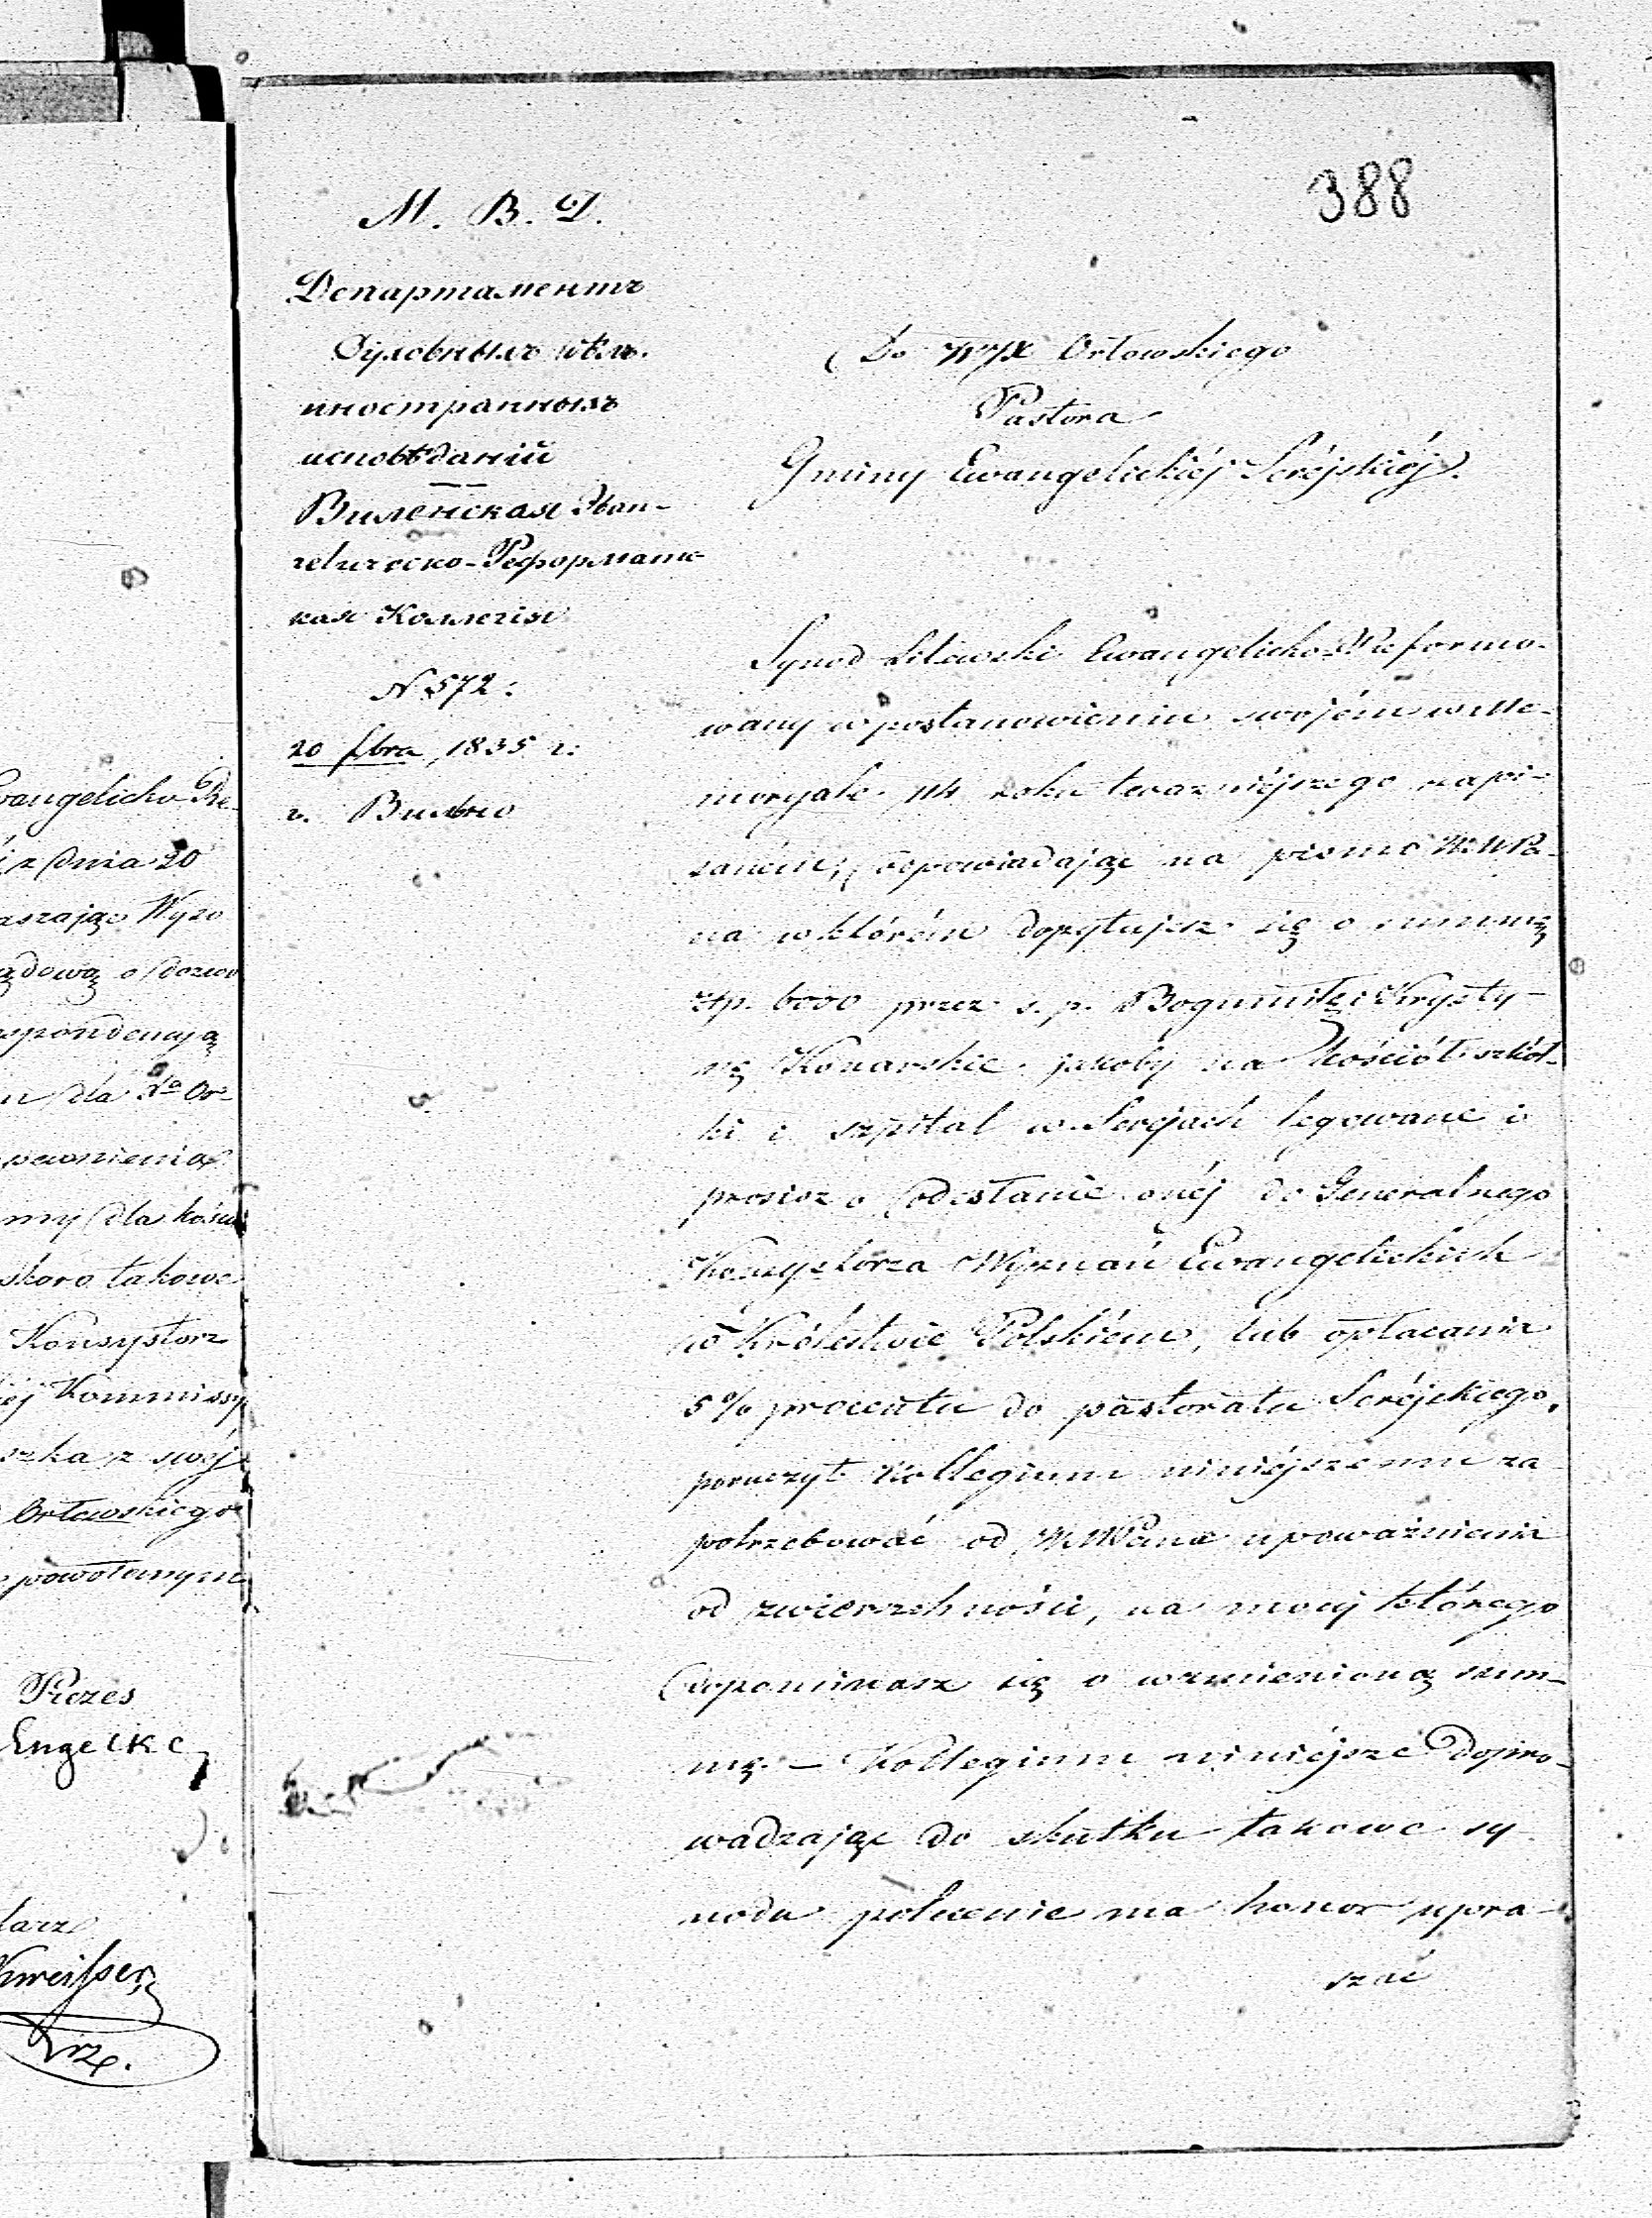 388
М. В. Д.
Департаментъ
Духовныхъ дѣлъ
иностранныхъ
исповѣданій
Виленская Эван-
гелическо-Реформатс-
кая Коллегія
N 572.
20 Sbra 1835 г.
г. Вильно
Do WJX Orłowskiego
Pastora
Gminy Ewangelickiéj Seréjskiéj.
Synod Litewski Ewangelicko-Reformo-
wany w postanowieniu swojém w Me-
moryale 114 roku teraźniéjszego zapi-
saném, odpowiadając na pismo WMPa-
na w którém dopytujesz się o summę
złp. 6000 przez ś. p. Bogumiłę i Krysty-
nę Konarskie jakoby na kościół szkół-
ki i szpital w Serejach legowane i
prosisz o odesłanie onéj do Generalnego
Konsystorza Wyznań Ewangelickich
w Królestwie Polskiém, lub opłacania
5% procentu do pastoratu Seréjskiego,
poruczył Kollegium niniéjszemu za
potrzebować od WMPana upoważnienia
od zwierzchności, na mocy którego
dopominasz się o wzmienioną sum-
mę. — Kollegium niniéjsze dopro-
wadzając do skutku takowe sy
nodu polecenie ma honor upra-
szać
wangelicko-Re-
i z dnia 20
aszając Wyso
ądową o dozwo
spondencyą
n dla Xa Or-
pewnienia
my dla kościo
skoro takowe
Konsystorz
iéj Kommissy
szka z swéj
Orłowskiego
powołanym
Prezes
Engelke
larz
Kweisser